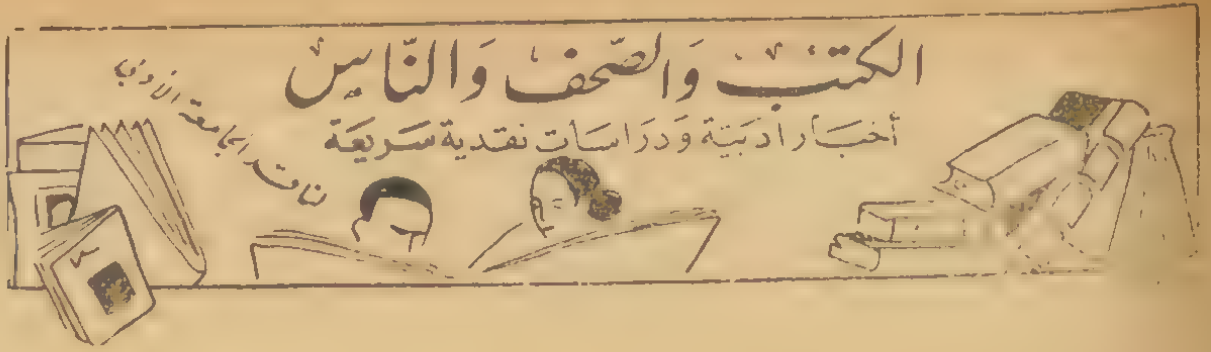 الكتب والصّحف والنّاس
أخبار ادبية ودراسات نقدية سريعة
لناقد الجامعة الأدبي